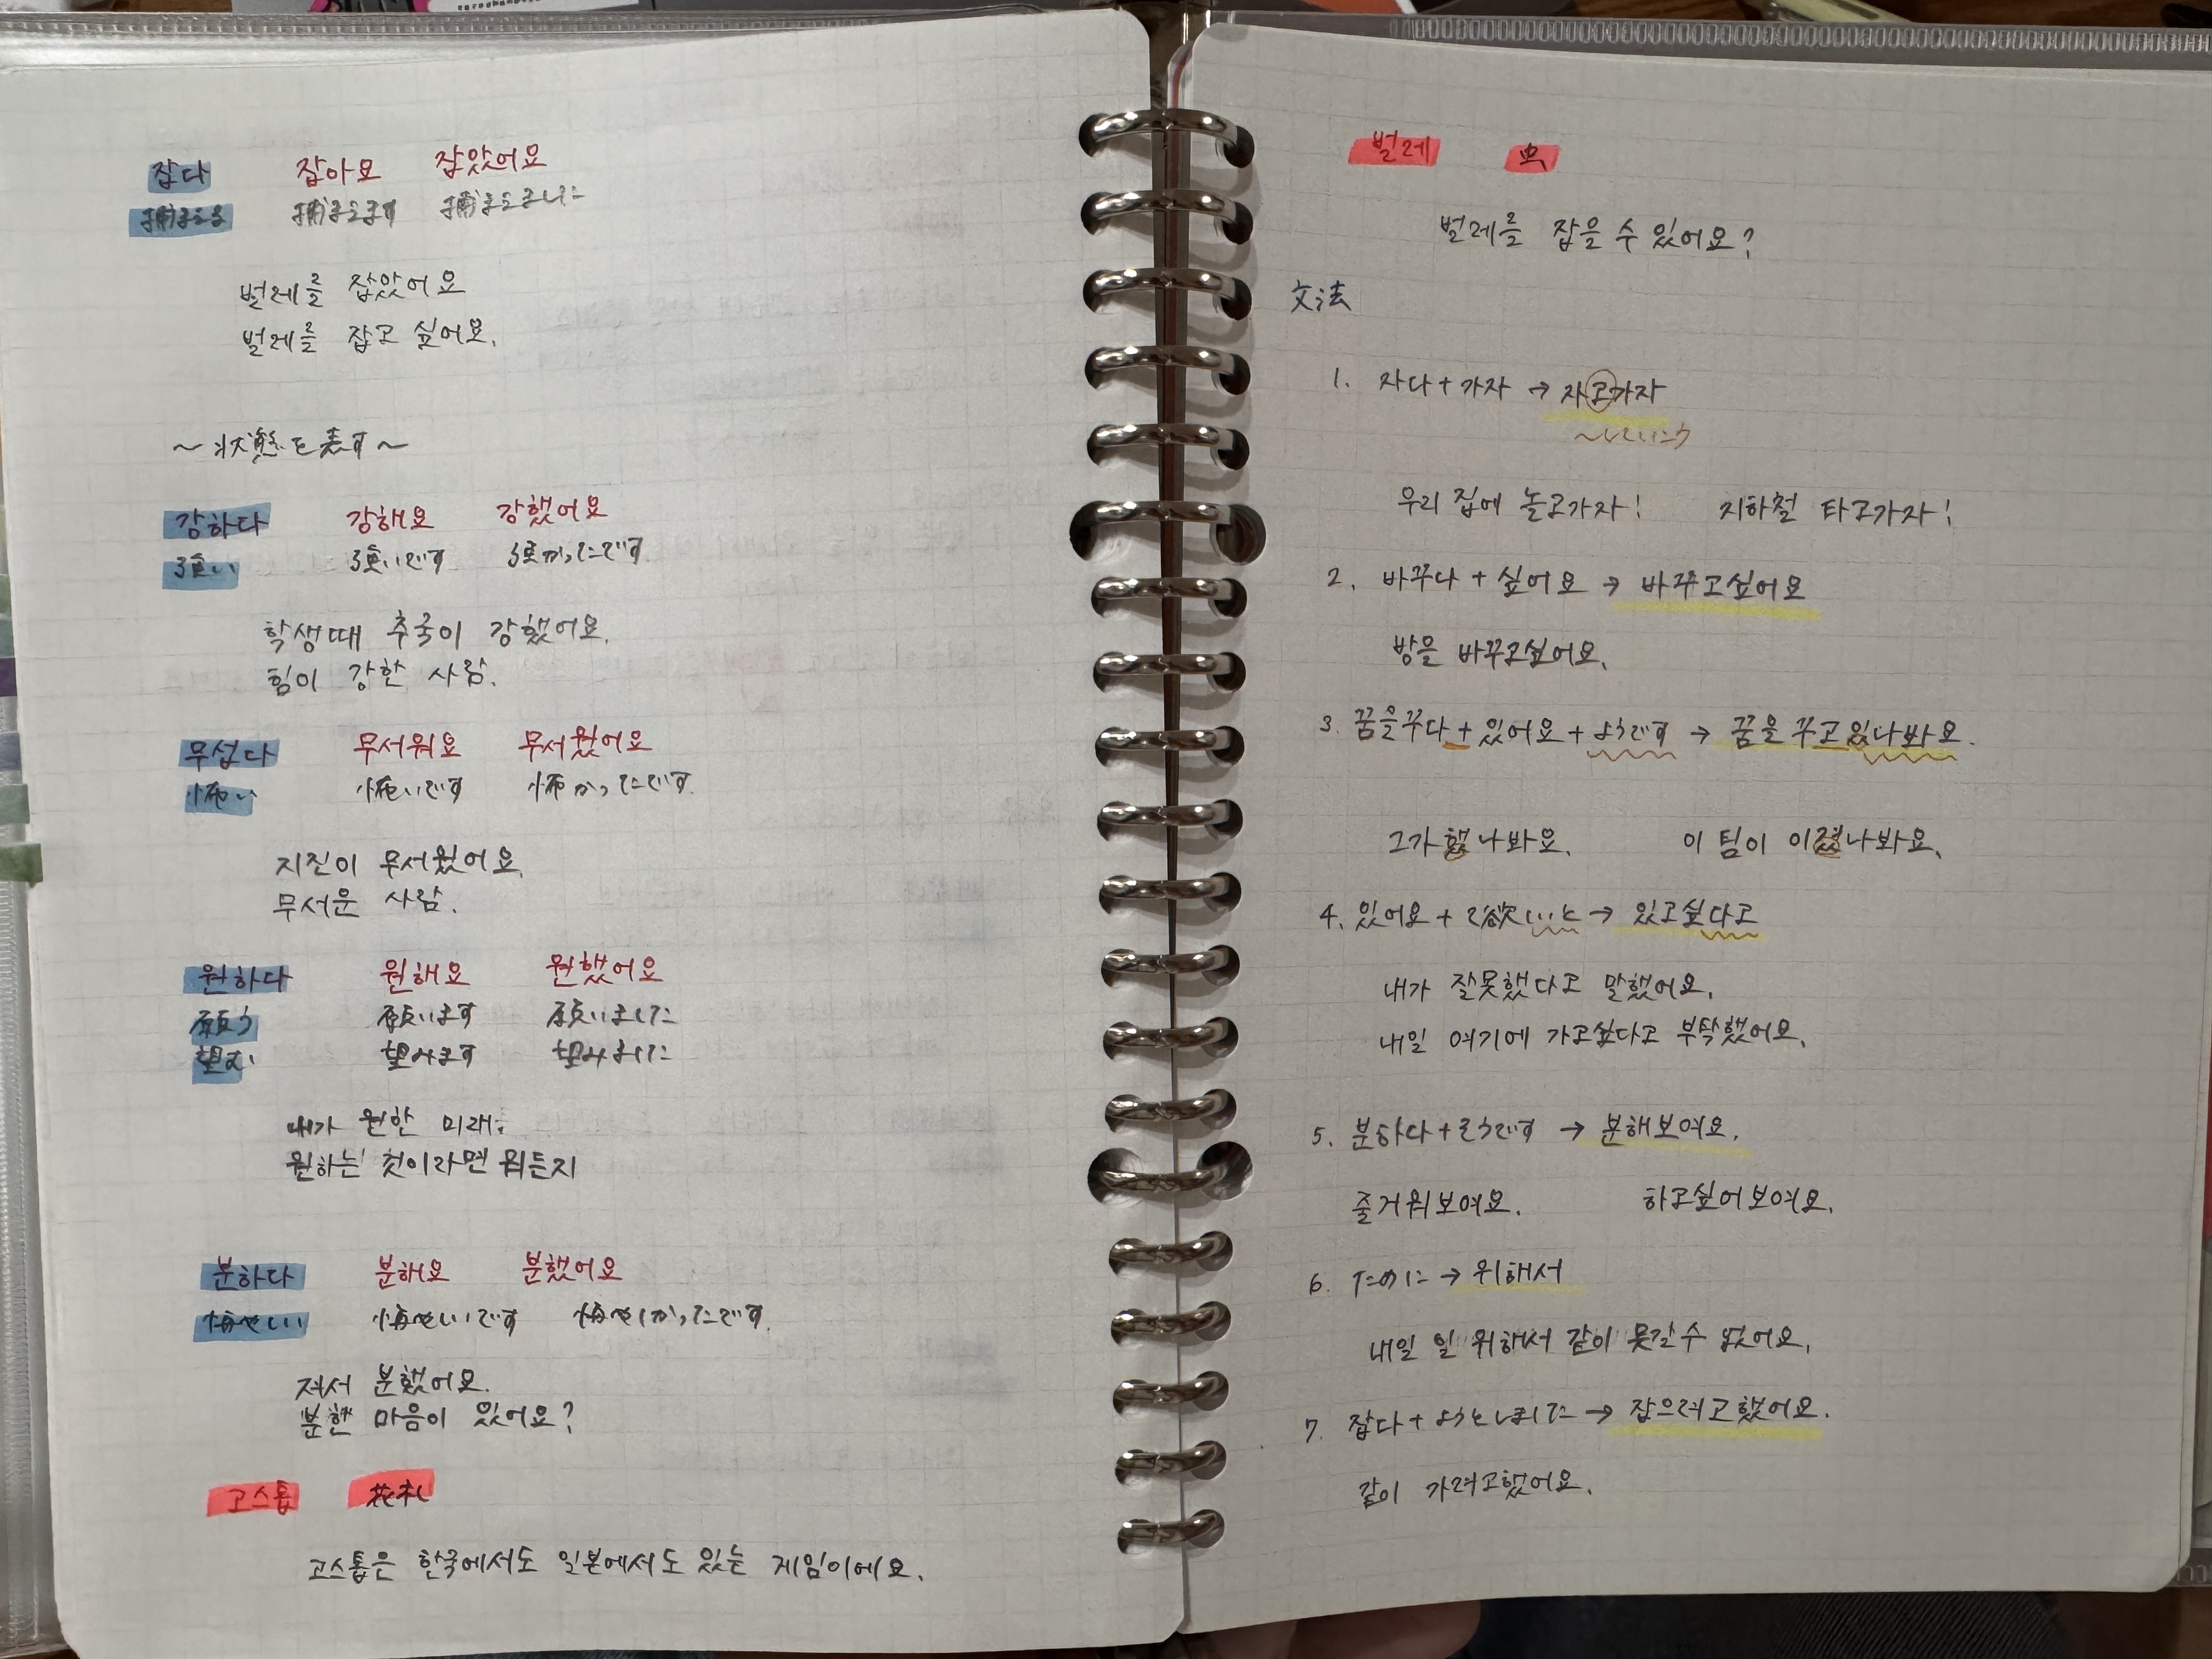 잡다 잡아요 잡았어요
捕まえる 捕まえます 捕まえました
벌레를 잡았어요
벌레를 잡고 싶어요.
〜状態を表す〜
강하다 강해요 강했어요
強い 強いです 強かったです
학생때 추국이 강했어요.
힘이 강한 사람.
무섭다 무서워요 무서웠어요
怖い 怖いです 怖かったです
지진이 무서웠어요.
무서운 사람.
원하다 원해요 원했어요
願う 願います 願いました
望む 望みます 望みました
내가 원한 미래.
원하는 것이라멘 뭐든지
분하다 분해요 분했어요
悔せしい 悔せいいです 悔せしかったです
져서 분했어요.
분한 마음이 있어요?
고스톱 花札
고스톱은 한국에서도 일본에서도 있는 게임이에요.
벌레 虫
벌레를 잡을 수 있어요?
文法
1. 자다+가자 → 자고가자
〜していこう
우리 집에 놀고가자! 지하철 타고가자!
2. 바꾸다 + 싶어요 → 바꾸고싶어요
방을 바꾸고싶어요.
3. 꿈을꾸다+있어요+ようです → 꿈을 꾸고있나봐요.
그가 했나봐요. 이 팀이 이겼나봐요.
4. 있어요+欲しいと → 있고싶다고
내가 잘못했다고 말했어요.
내일 여기에 가고싶다고 부탁했어요.
5. 분하다+そうです → 분해보여요.
즐거워보여요. 하고싶어보여요.
6. ために → 위해서
내일 일 위해서 같이 못갈수 없어요.
7. 잡다+ようとしました → 잡으려고했어요.
같이 가려고했어요.